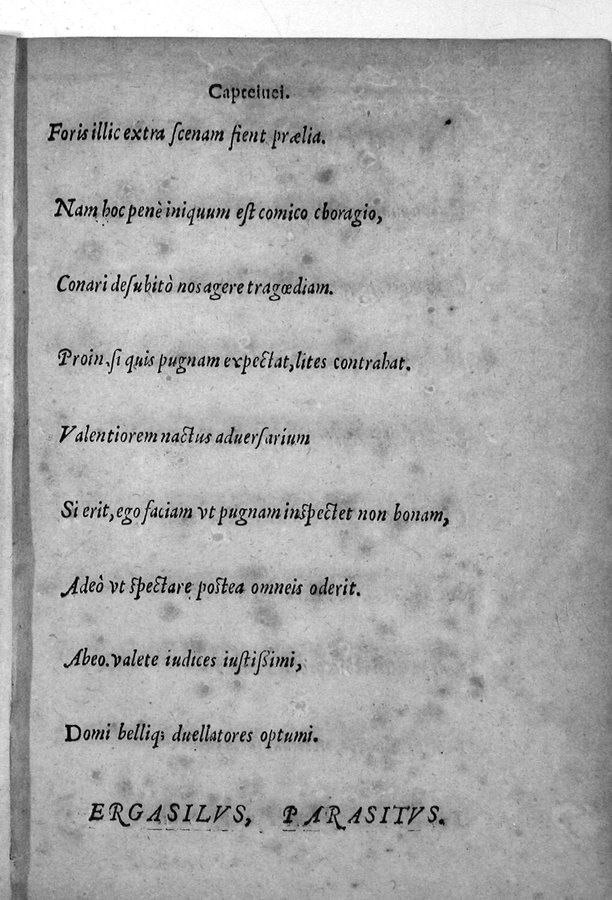 Capteiuei.
Foris illic extra ſcenam fient prælia.
Nam hoc penè iniquum eſt comico choragio,
Conari deſubitò nos agere tragœdiam.
Proin, ſi quis pugnam expectat, lites contrahat.
Valentiorem nactus aduerſarium
Si erit, ego faciam vt pugnam inſpectet non bonam,
Adeò vt ſpectare poſtea omneis oderit.
Abeo. valete iudices iuſtiſſimi,
Domi belliq; duellatores optumi.
ERGASILVS, PARASITVS.